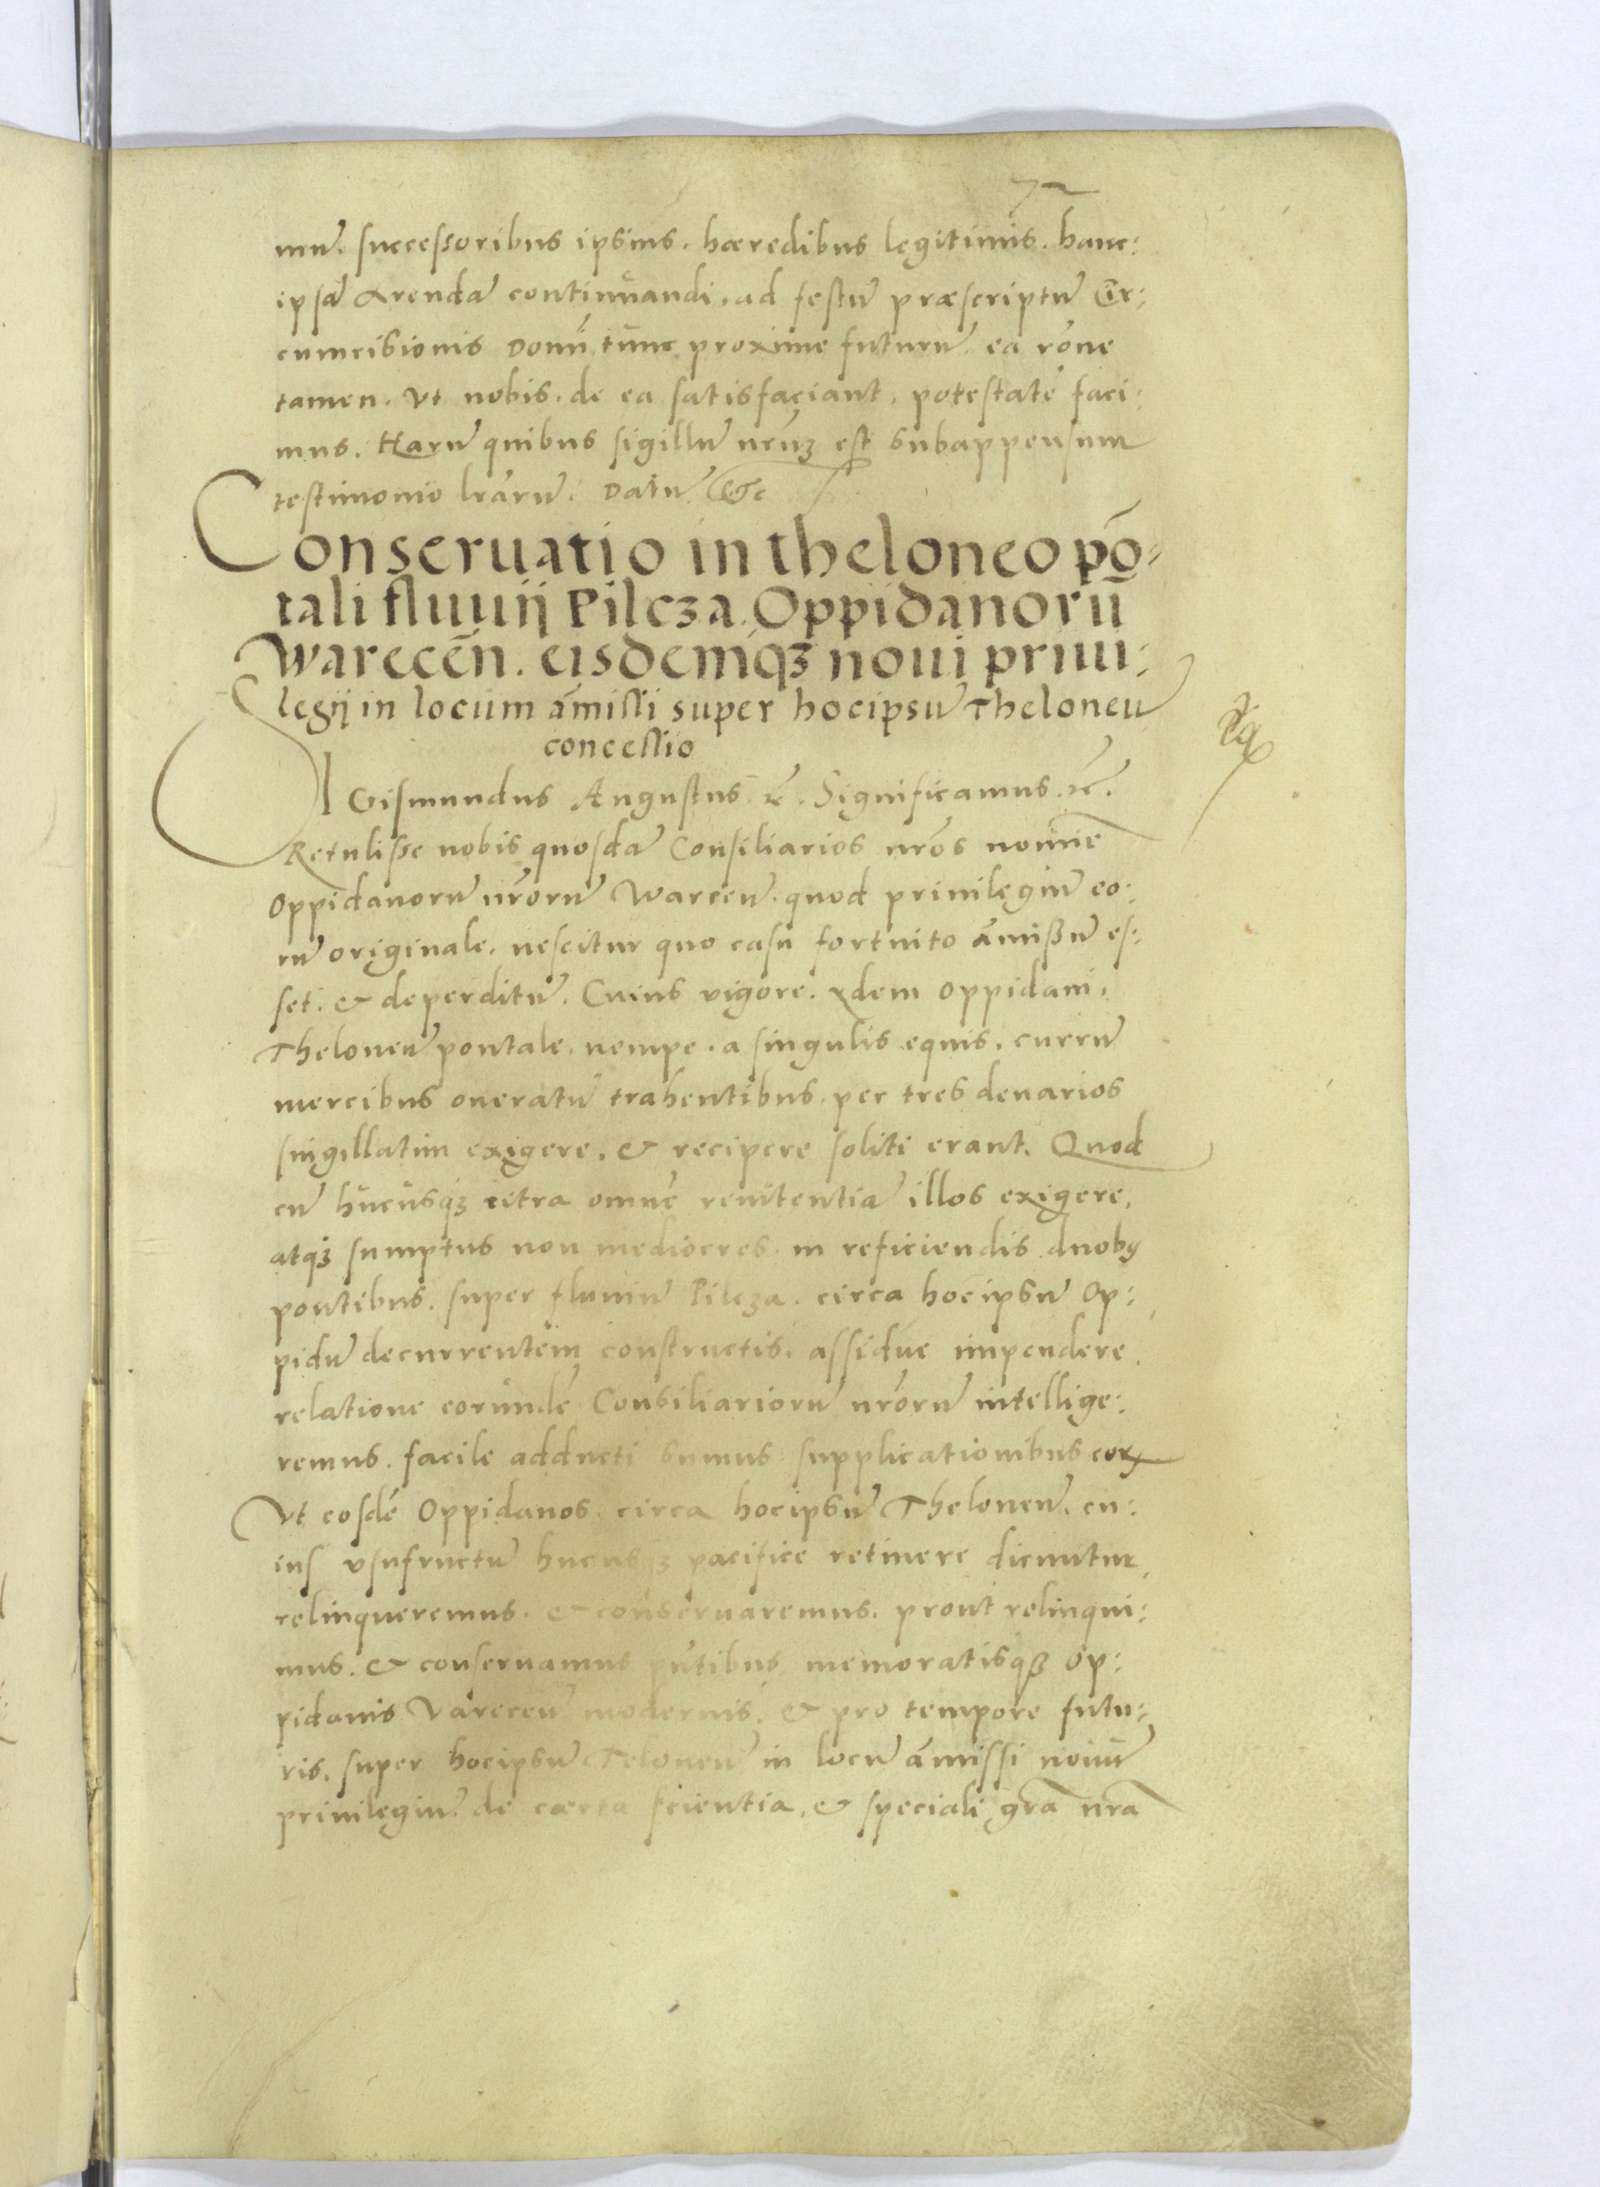 72
mū. successoribus ipsius. hæredibus legitimis. hanc:
ipsā Arendā continuandi. ad festū præscriptū Cir:
cumcisionis Domī tunc proxime futurū. ea rōne
tamen. Vt nobis. de ea satisfaciant. potestatē faci:
mus. Harū quibus sigillū nr̄ūꝫ est subappensum
testimonio lr̄arū. Datū &c
Conseruatio in theloneo pō:
tali fluuij Pilcza. Oppidanorū
Warecēn. eisdemqꝫ noui priui:
legij in locum amissi super hocipsū Theloneū
concessio
SIGismundus Augustus ꝛc̄. Significamus ꝛc̄.
Retulisse nobis quosdā Consiliarios nr̄os nomine
Oppidanorū nr̄orū Warecen̄. quod priuilegiū eo:
rū originale. nescitur quo casu fortuito amissū es:
set. & deperditū. Cuius vigore. ydem oppidani.
Theloneū pontale. nempe. a singulis equis. currū
mercibus oneratū trahentibus. per tres denarios
singillatim exigere. & recipere soliti erant. Quod
cū hucusqꝫ citra omnē renitentiā illos exigere.
atqꝫ sumptus non mediocres. in reficiendis duobꝯ
pontibus. super fluuiū Pilcza. circa hocipsū Op:
pidū decurrentem constructis. assidue impendere.
relatione eorundē Consiliariorū nr̄orū intellige:
remus. facile adducti sumus supplicationibus eorꝝ
Vt eosdē Oppidanos. circa hocipsū Theloneū. cu:
ius vsufructū hucusqꝫ pacifice retinere dicuntur.
relinqueremus. & conseruaremus. prout relinqui:
mus. & conseruamus pn̄tibus. memoratisqꝫ Op:
pidanis Varecen̄ modernis. & pro tempore futu:
ris. super hocipsū Teloneū in locū amissi nouū
priuilegiū. de cærta scientia. & speciali gr̄a nr̄a